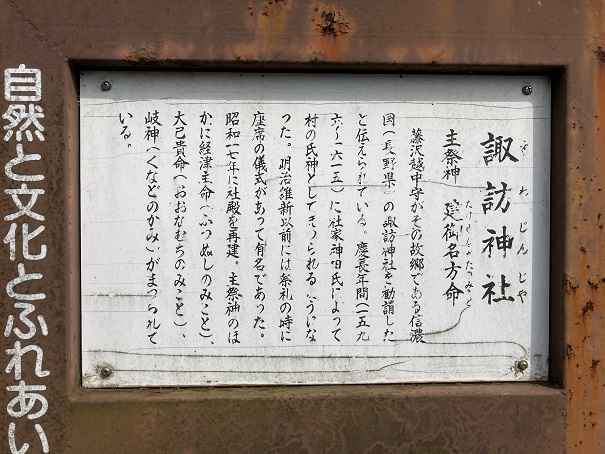 諏訪神社
すわじんじゃ
主祭神 建御名方命
たけみなかたのみこと
藤沢越中守がその故郷である信濃
国(長野県)の諏訪神社を勧請した
と伝えられている。慶長年間(一五九
六〜一六一五)に社家神田氏によって
村の氏神としてまつられるようにな
った。明治維新以前には祭礼の時に
座席の儀式があって有名であった。
昭和一七年に社殿を再建。主祭神のほ
かに経津主命(ふつぬしのみこと)、
大己貴命(おおなむちのみこと)、
岐神(くなどのかみ)がまつられて
いる。
自然と文化とふれあい